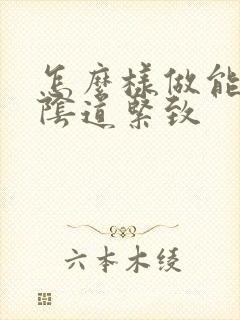 怎麼樣做能
陰道緊致
六本木绫